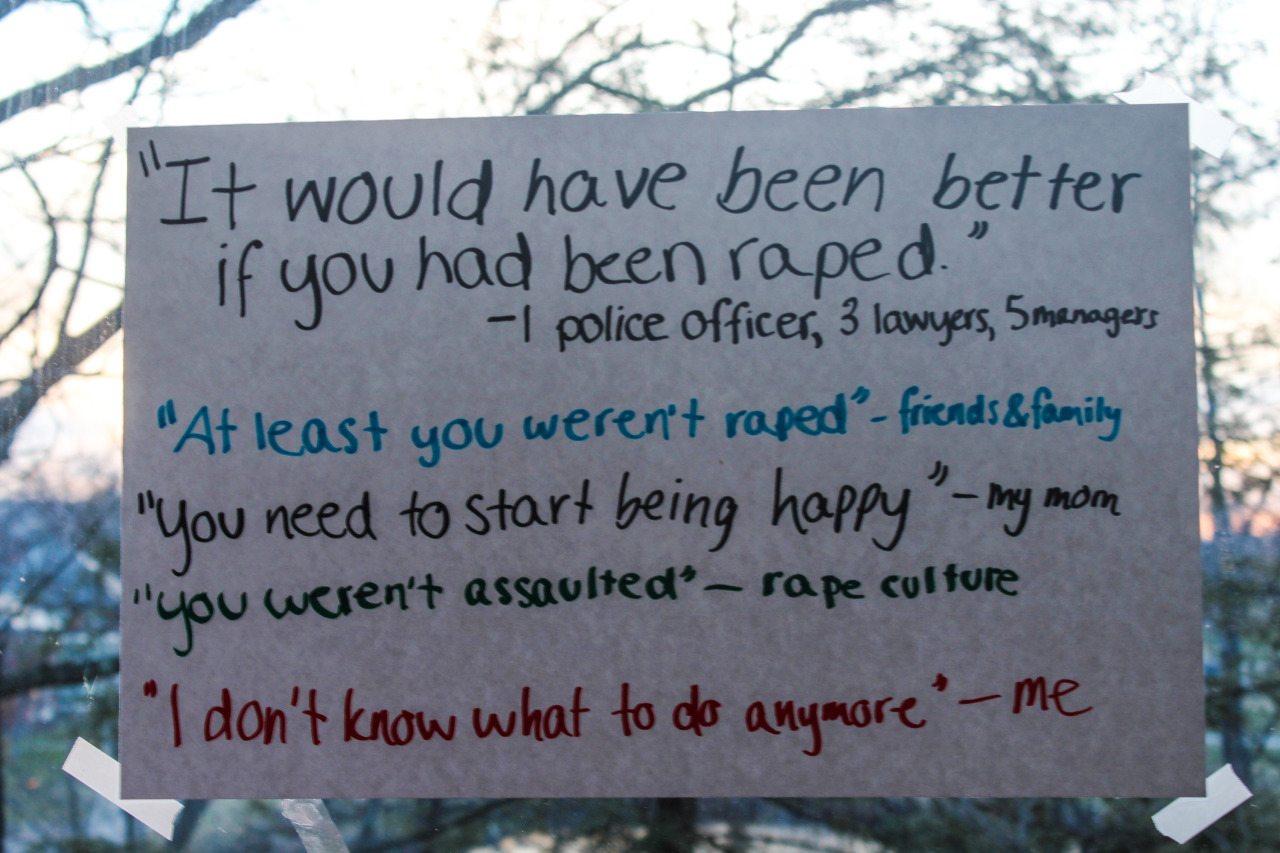 "It would have been better
if you had been raped."
-1 police officer, 3 lawyers, 5 managers
"At least you weren't raped" - friends & family
"You need to start being happy" - my mom
"you weren't assaulted" - rape culture
"I don't know what to do anymore" - me